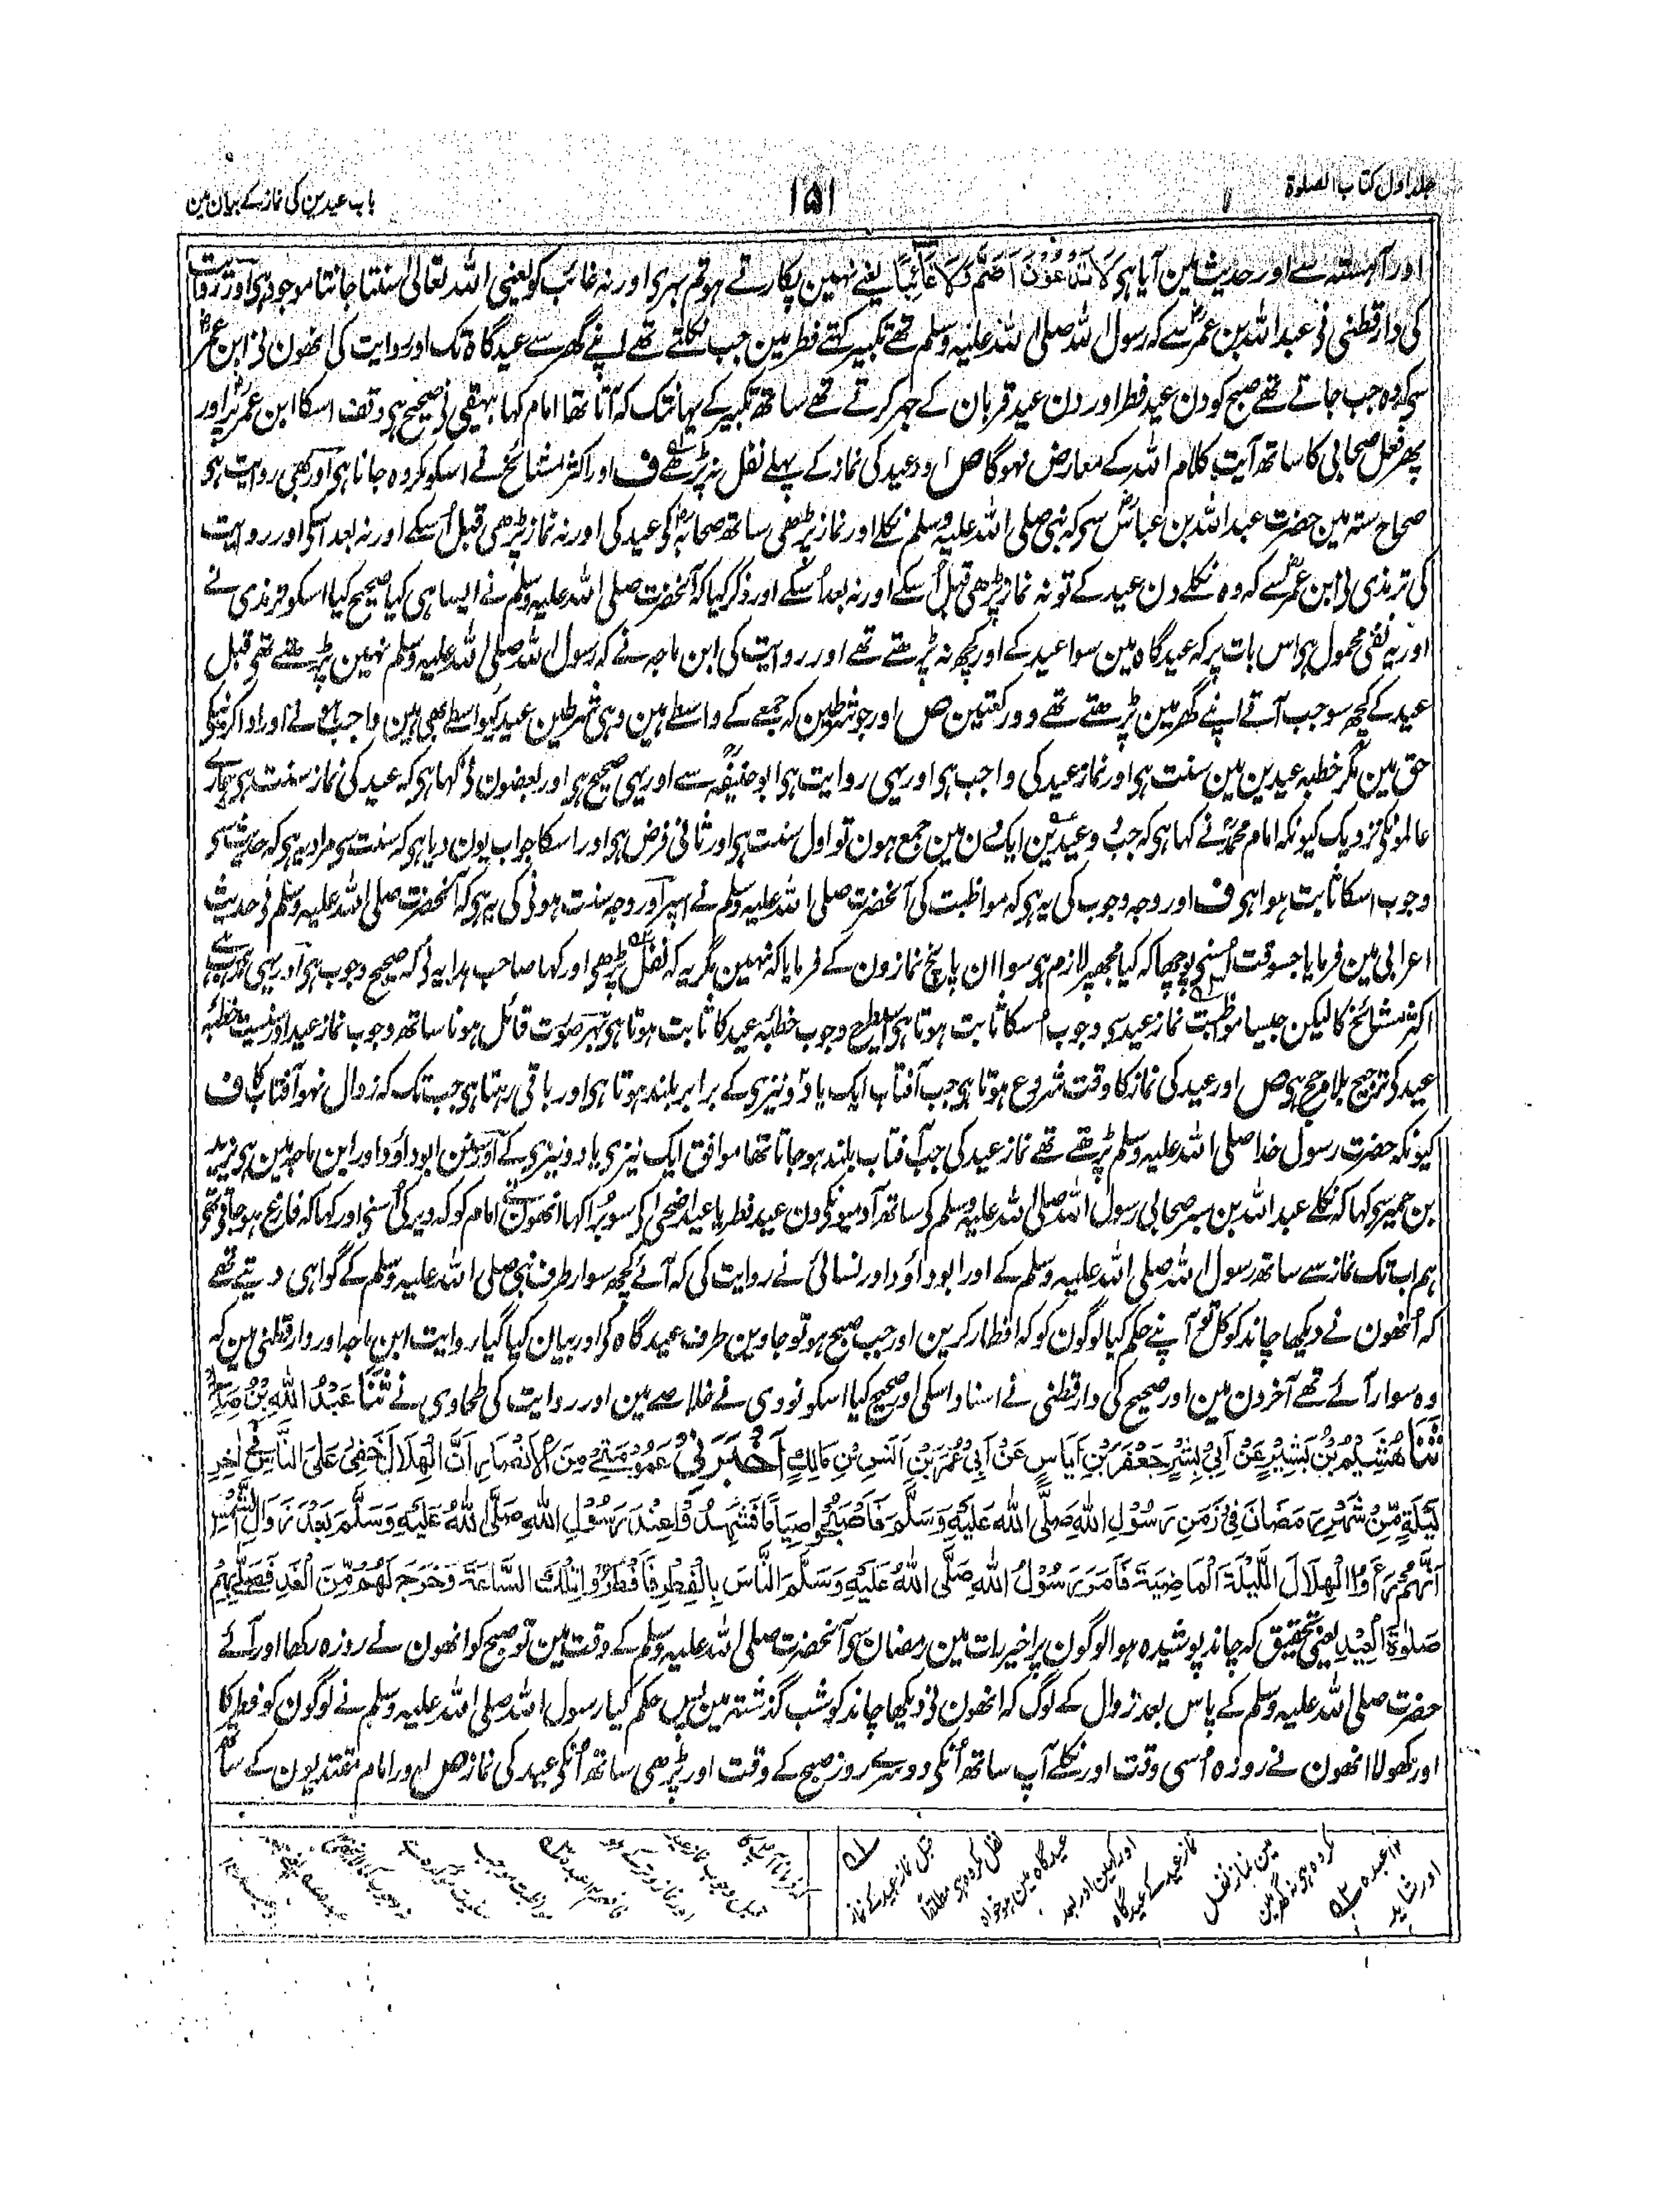 جلد اول کتاب الصلوۃ
۱۵۱
باب عیدین کی نماز کے بیان مین
اور آہستہ سے اور حدیث مین آیا ہی لَا تَدْعُوْنَ اَصَمَّ وَلَا غَائِبًا یعنے نہین پکارتے ہو تم بہری اور نہ غائب کو یعنی اللہ تعالی سنتا جانتا موجود ہی اور روایت
کی دارقطنی نی عبد اللہ بن عمرؓ سے کہ رسول اللہ صلی اللہ علیہ وسلم تھے تکبیر کہتے فطر مین جب نکلتے تھے اپنے گھر سے عیدگاہ تک اور روایت کی انھون نی ابن عمرؓ
سی کہ وہ جب جاتے تھے صبح کو دن عید فطر اور دن عید قربان کے جہر کرتے تھے ساتھ تکبیر کے یہانتک کہ آتا تھا امام کہا بیہقی نی صحیح ہی وقف اسکا ابن عمرؓ پر اور
پھر فعل صحابی کا ساتھ آیت کلام اللہ کے معارض نہوگا ص اور عید کی نماز کے پہلے نفل نہ پڑھے ف اور اکثر مشائخ نے اسکو مکروہ جانا ہی اور کہی روایت ہی
صحاح ستہ مین حضرت عبد اللہ بن عباسؓ سی کہ نبی صلی اللہ علیہ وسلم نکلے اور نماز پڑھی ساتھ صحابہؓ کی عید کی اور نہ نماز پڑھی قبل اُسکے اور نہ بعد اسکی اور روایت
کی ترمذی نی ابن عمرؓ سے کہ وہ نکلے دن عید کے تو نہ نماز پڑھی قبل اُسکے اور نہ بعد اُسکے اور ذکر کیا کہ آنحضرت صلی اللہ علیہ وسلم نے ایسا ہی کیا صحیح کیا اسکو ترمذی نے
اور یہ نفی محمول ہی اس بات پر کہ عیدگاہ مین سوا عید کے اور کچھ نہ پڑھتے تھے اور روایت کی ابن ماجہ نے کہ رسول اللہ صلی اللہ علیہ وسلم نہین پڑھتے تھی قبل
عید کے کچھ سو جب آتے اپنے گھر مین پڑھتے تھے دو رکعتین ص اور جو شرطین کہ جمعے کے واسطے ہین وہی شرطین عید کیواسطے بھی ہین واجب ہونے اور ادا کرنیکی
حق مین مگر خطبہ عیدین مین سنت ہی اور نماز عید کی واجب ہی اور یہی روایت ہی ابوحنیفہؒ سے اور یہی صحیح ہی اور بعضون نی کہا ہی کہ عید کی نماز سنت ہی ہمارے
عالمونکی نزدیک کیونکہ امام محمدؒ نے کہا ہی کہ جب دو عیدین ایک دن مین جمع ہون تو اول سنت ہی اور ثانی فرض ہی اور اسکا جواب یون دیا ہی کہ سنت سی مراد یہ ہی کہ حدیث سی
وجوب اسکا ثابت ہوا ہی ف اور وجہ وجوب کی یہ ہی کہ مواظبت کی آنحضرت صلی اللہ علیہ وسلم نے اسپر اور وجہ سنت ہونی کی یہ ہی کہ آنحضرت صلی اللہ علیہ وسلم نی حدیث
اعرابی مین فرمایا جسوقت اُسنی پوچھا کہ کیا مجھپر لازم ہی سوا ان پانچ نمازون کے فرمایا کہ نہین مگر یہ کہ نفل پڑھی اور کہا صاحب ہدایہ نی کہ صحیح وجوب ہی اور یہی
اکثر مشائخ کا لیکن جیسا مواظبت نماز عید سی وجوب اُسکا ثابت ہوتا ہی اسیطرح وجوب خطبۂ عید کا ثابت ہوتا ہی بہر صورت قائل ہونا ساتھ وجوب نماز عید اور سنیت خطبۂ
عید کی ترجیح بلا مرجح ہی ص اور عید کی نماز کا وقت شروع ہوتا ہی جب آفتاب ایک یا دو نیزی کے برابر بلند ہوتا ہی اور باقی رہتا ہی جب تک کہ زوال نہو آفتاب کا ف
کیونکہ حضرت رسول خدا صلی اللہ علیہ وسلم پڑھتے تھے نماز عید کی جب آفتاب بلند ہو جاتا تھا موافق ایک نیزی یا دو نیزی کے اور سنن ابو داؤد اور ابن ماجہ مین ہی یزید
بن خمیر سی کہا کہ نکلے عبد اللہ بن بسر صحابی رسول اللہ صلی اللہ علیہ وسلم کی ساتھ آدمیونکی دن عید فطر یا عید اضحی کی سو بُرا کہا انھون نے امام کو کہ دیر کی اُسنی اور کہا کہ فارغ ہو جاتی تھی
ہم اب تک نماز سے ساتھ رسول اللہ صلی اللہ علیہ وسلم کے اور ابو داؤد اور نسائی نے روایت کی کہ آئے کچھ سوار طرف نبی صلی اللہ علیہ وسلم کے گواہی دیتے تھے
کہ اُنھون نے دیکھا چاند کو کل تو آپنے حکم کیا لوگون کو کہ افطار کرین اور جب صبح ہو تو جاوین طرف عیدگاہ کی اور بیان کیا گیا روایت ابن ماجہ اور دارقطنی مین کہ
وہ سوار آئے تھے آخر دن مین اور صحیح کی دارقطنی نے اسناد اسکی اور صحیح کیا اسکو نووی نے خلاصے مین اور روایت کی طحاوی نے ثَنَا عَبْدُ اللّٰہِ بْنُ صَالِحٍ
ثَنَا ھُشَیْمُ بْنُ بَشِیْرٍ عَنْ اَبِیْ بِشْرٍ جَعْفَرَ بْنِ اَیَاسٍ عَنْ اَبِیْ عُمَرَ بْنِ اَنَسِ بْنِ مَالِکٍ اَخْبَرَنِیْ عُمُوْمَتِیْ مِنَ الْاَنْصَارِ اَنَّ الْھِلَالَ خَفِیَ عَلَی النَّاسِ فِیْ اٰخِرِ
لَیْلَۃٍ مِّنْ شَھْرِ رَمَضَانَ فِیْ زَمَنِ رَسُوْلِ اللّٰہِ صَلَّی اللّٰہُ عَلَیْہِ وَسَلَّمَ فَاَصْبَحُوْا صِیَامًا فَشَھِدُوْا عِنْدَ رَسُوْلِ اللّٰہِ صَلَّی اللّٰہُ عَلَیْہِ وَسَلَّمَ بَعْدَ زَوَالِ الشَّمْسِ
اَنَّھُمْ رَءَاوُا الْھِلَالَ اللَّیْلَۃَ الْمَاضِیَۃَ فَاَمَرَ رَسُوْلُ اللّٰہِ صَلَّی اللّٰہُ عَلَیْہِ وَسَلَّمَ النَّاسَ بِالْفِطْرِ فَاَفْطَرُوْا تِلْکَ السَّاعَۃَ وَخَرَجَ لَھُمْ مِّنَ الْغَدِ فَصَلّٰی بِھِمْ
صَلٰوۃَ الْعِیْدِ یعنی تحقیق کہ چاند پوشیدہ ہوا لوگون پر اخیر رات مین رمضان سی آنحضرت صلی اللہ علیہ وسلم کے وقت مین تو صبح کو انھون نے روزہ رکھا اور آئے
حضرت صلی اللہ علیہ وسلم کے پاس بعد زوال کے لوگ کہ انھون نی دیکھا چاند کو شب گذشتہ مین پس حکم کیا رسول اللہ صلی اللہ علیہ وسلم نے لوگون کو فطر کا
اور کھولا انھون نے روزہ اُسی وقت اور نکلے آپ ساتھ اُنکی دوسرے روز صبح کے وقت اور پڑھی ساتھ اُنکی عید کی نماز ص اور امام مقتدیون کے ساتھ
قبل نماز عید کے نماز
نفل مکروہ ہی مطلقا
عیدگاہ مین ہو خواہ
اور کہین اور بعد
نماز عید کے عیدگاہ
مین نماز نفل
مکروہ ہی نہ گھر مین
۱۲ عبدہ
اور شاید